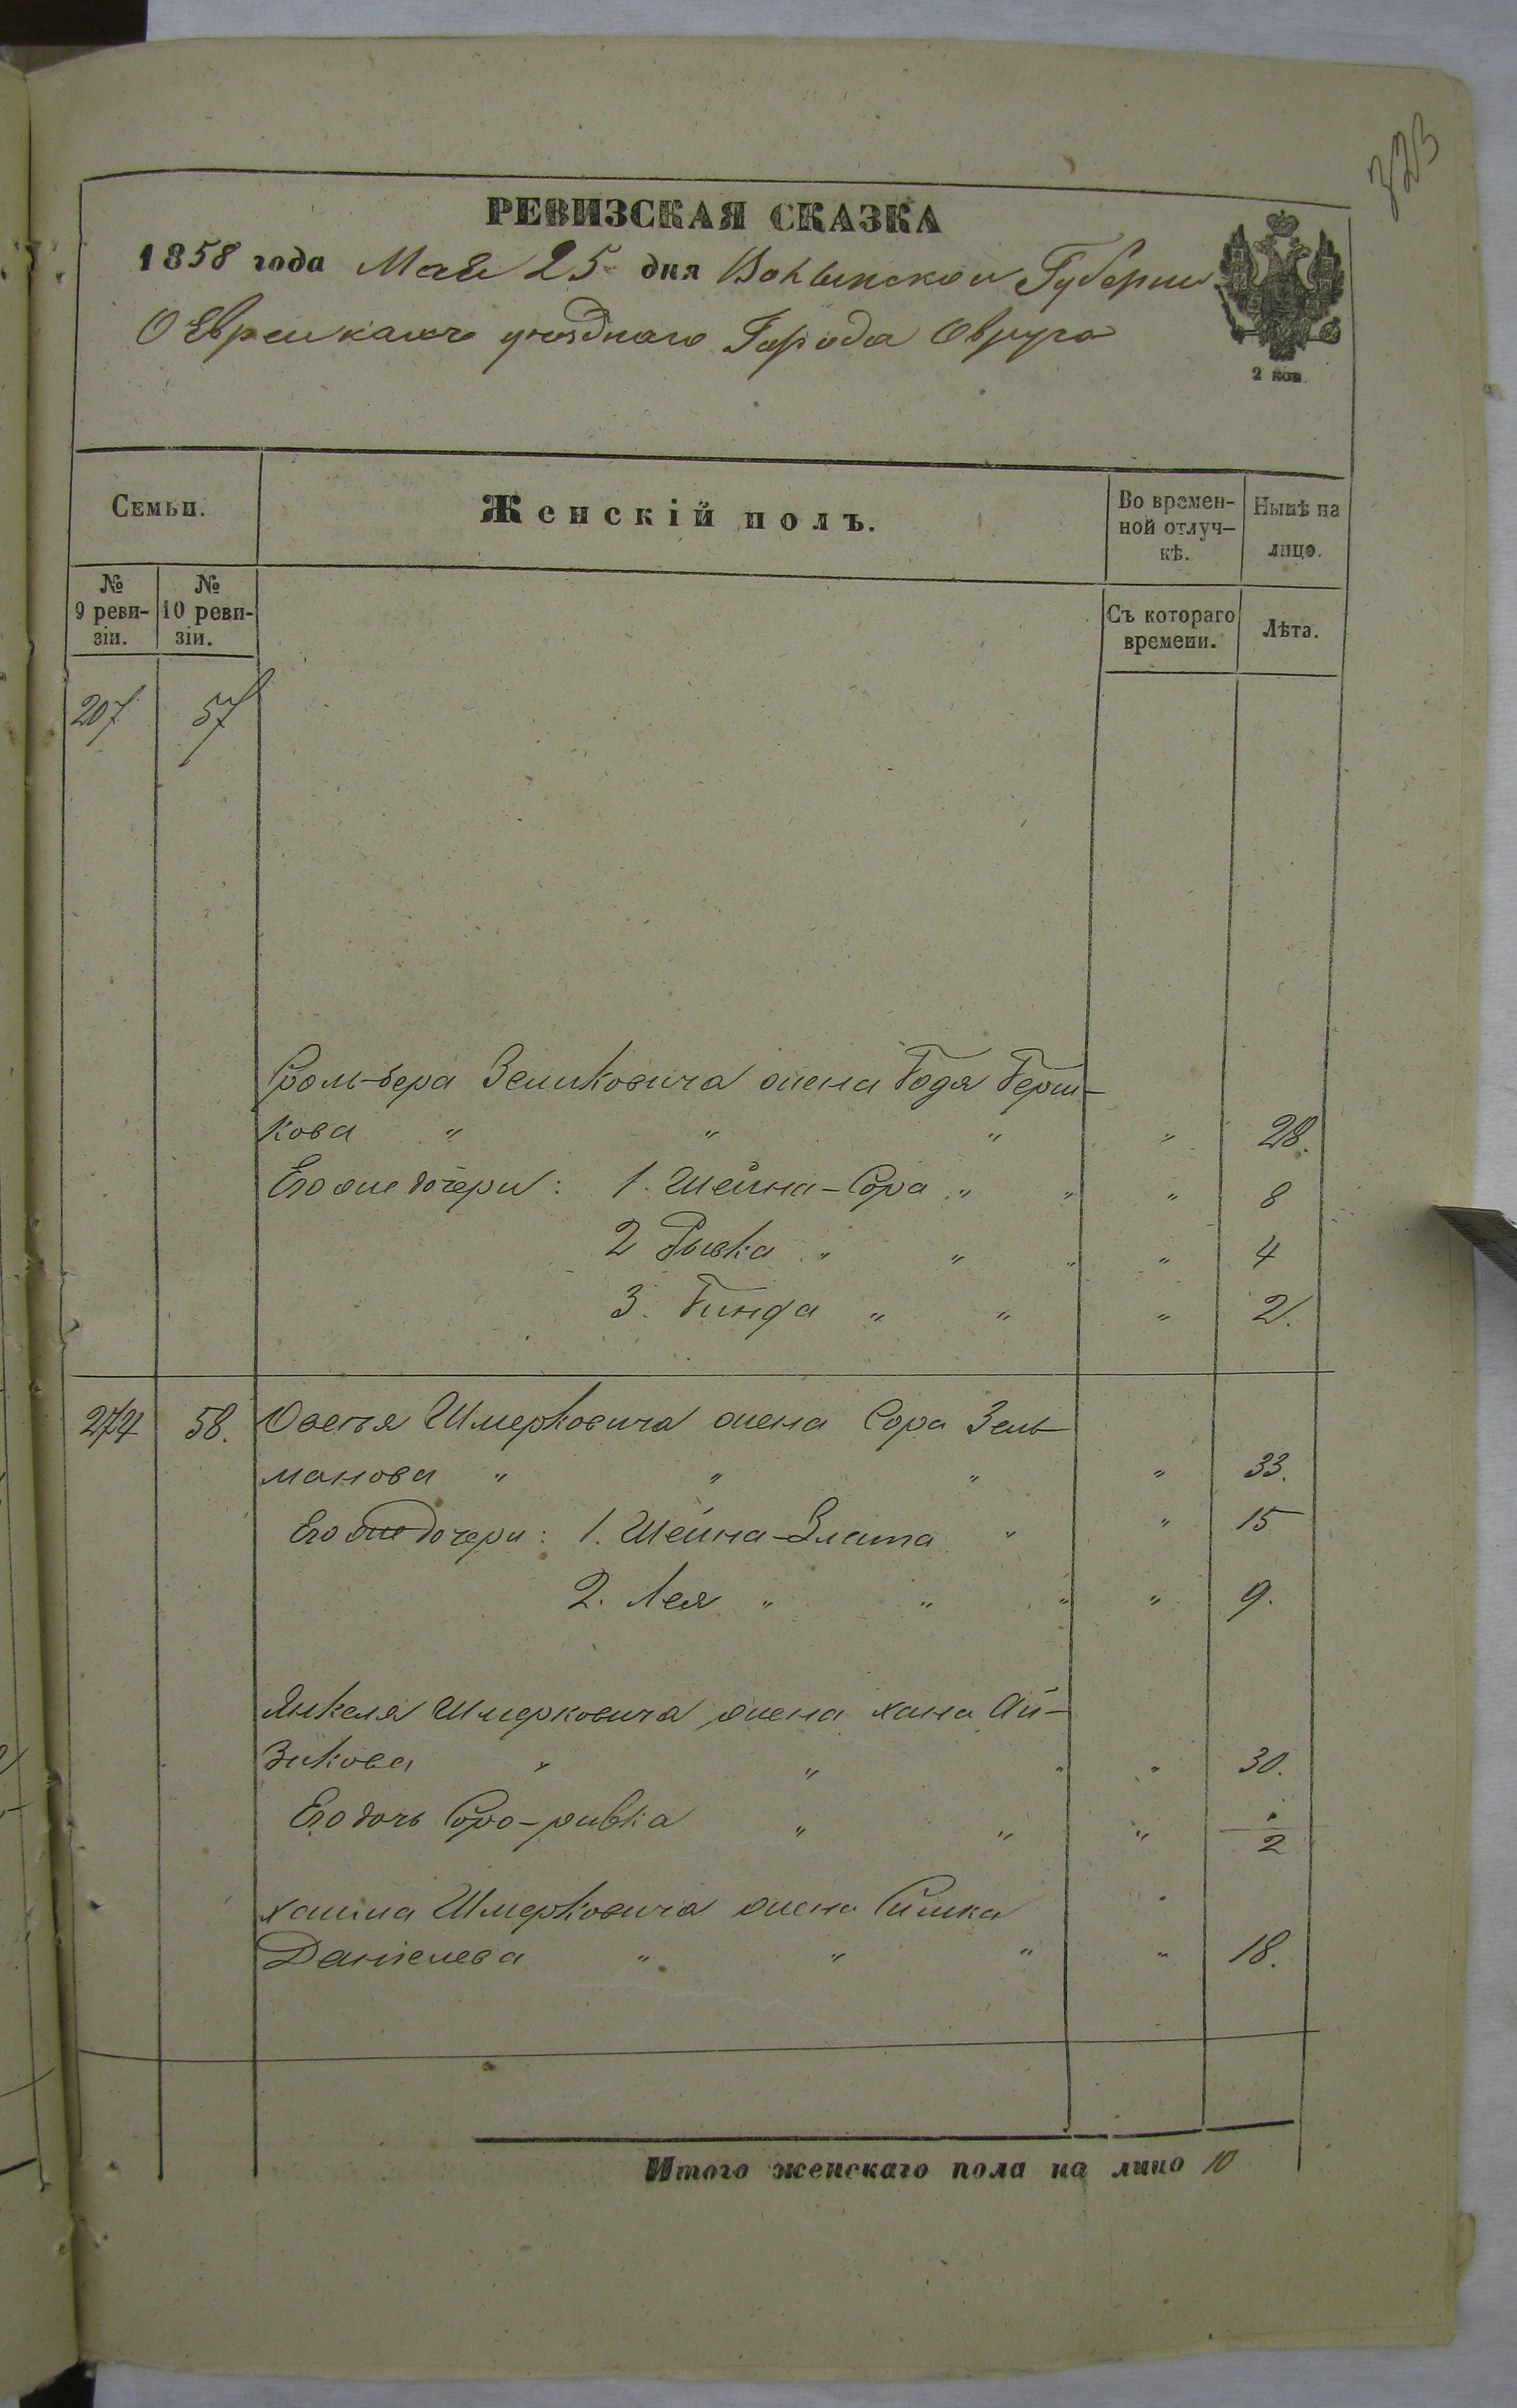 323
РЕВИЗСКАЯ СКАЗКА
1858 года Мая 25 дня Волынской Губернии
О Еврейкахъ уѣзднаго Города Овруча
2 коп.
Семьи.
Женскій полъ.
Во времен-
ной отлуч-
кѣ.
Нынѣ на
лицо.
№
9 реви-
зіи.
№
10 реви-
зіи.
Съ котораго
времени.
Лѣта.
207 57
Сроль-бера Зельковича жена Годя Герш-
кова " " " " 28.
Его же дочери: 1. Шейна-Сора " " " 8
2 Рывка " " " " 4
3. Гинда " " " 2.
274 58. Овсея Шмерковича жена Сора Зель-
манова " " " " 33.
Его же дочери: 1. Шейна-Злата " " 15
2. Лея " " " " 9.
Янкеля Шмерковича жена хана Ай-
зикова " " " " 30.
Его дочь Соро-ривка " " " 1/2
хаима Шмерковича жена Симка
Даніелева " " " " 18.
Итого женскаго пола на лицо 10